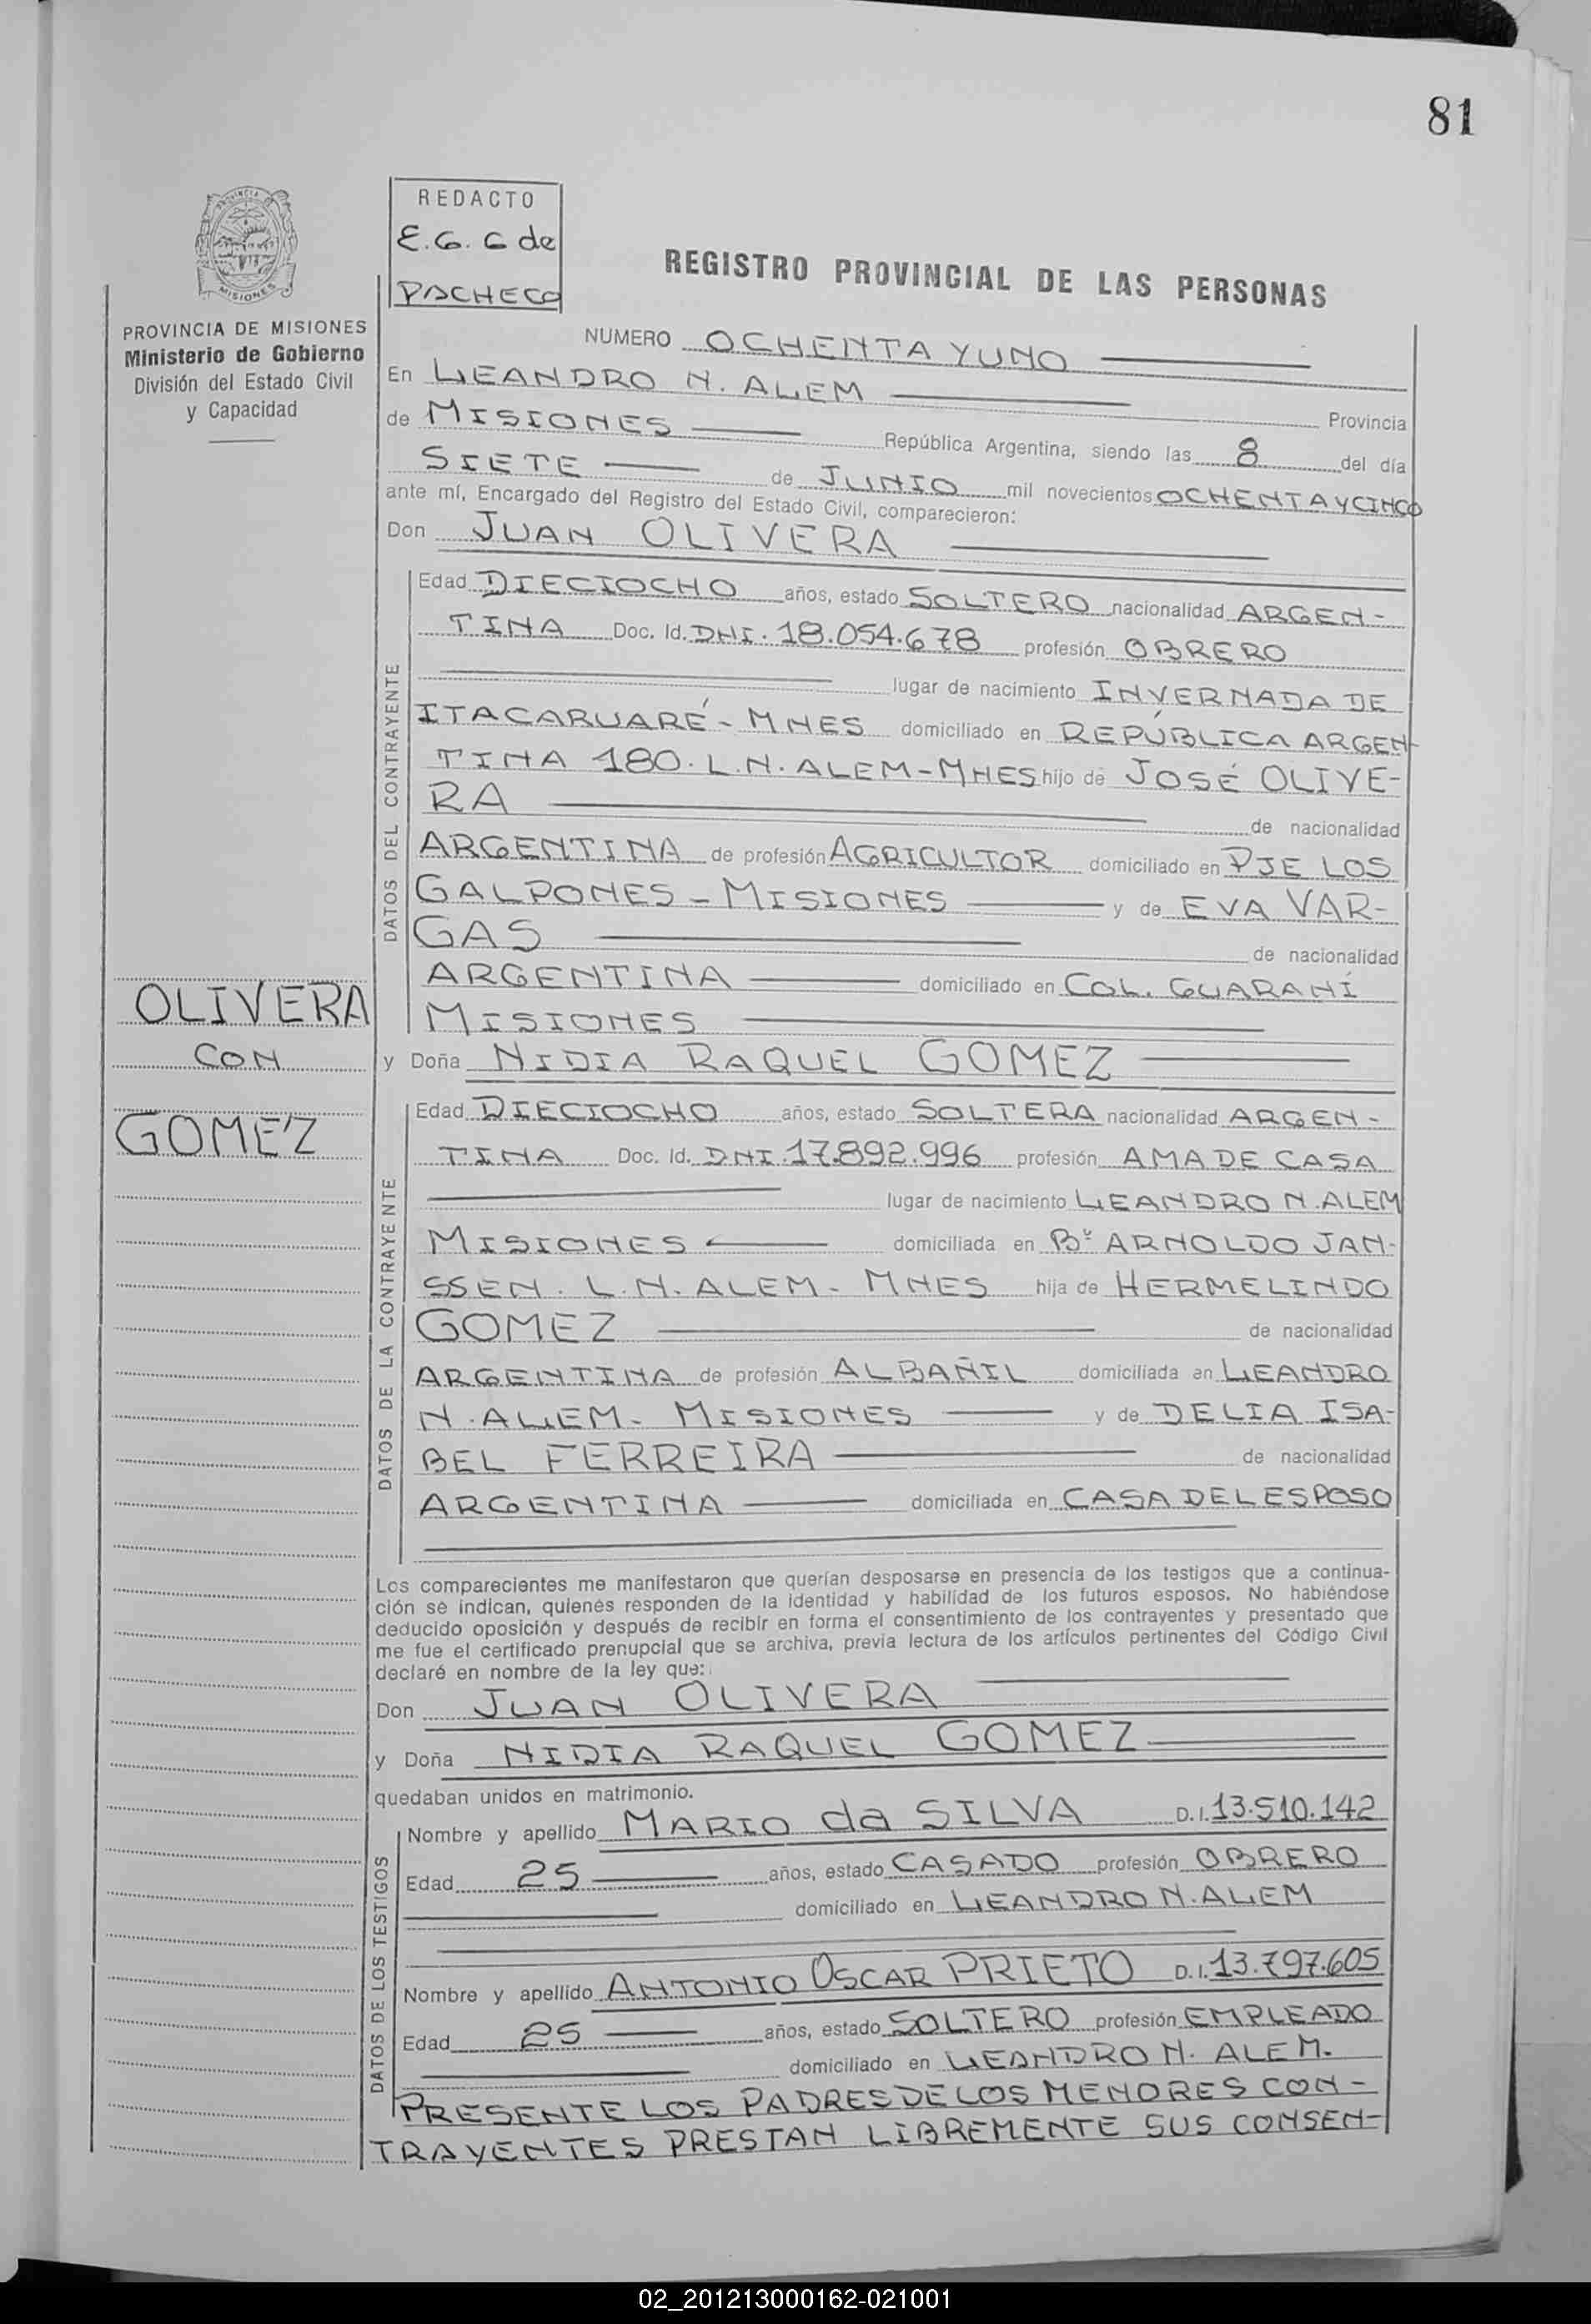 81
PROVINCIA
MISIONES
PROVINCIA DE MISIONES
Ministerio de Gobierno
División del Estado Civil
y Capacidad
REDACTO
E.G. G de
PACHECO
REGISTRO PROVINCIAL DE LAS PERSONAS
NUMERO OCHENTA Y UNO
En LEANDRO N. ALEM Provincia
de MISIONES República Argentina, siendo las 8 del día
SIETE de JUNIO mil novecientos OCHENTA Y CINCO
ante mí, Encargado del Registro del Estado Civil, comparecieron:
Don JUAN OLIVERA
DATOS DEL CONTRAYENTE
Edad DIECIOCHO años, estado SOLTERO nacionalidad ARGEN-
TINA Doc. Id. DNI. 18.054.678 profesión OBRERO
lugar de nacimiento INVERNADA DE
ITACARUARÉ - MNES domiciliado en REPÚBLICA ARGEN-
TINA 180. L.N. ALEM - MNES hijo de JOSÉ OLIVE-
RA de nacionalidad
ARGENTINA de profesión AGRICULTOR domiciliado en PJE LOS
GALPONES - MISIONES y de EVA VAR-
GAS de nacionalidad
ARGENTINA domiciliado en COL. GUARANÍ
MISIONES
OLIVERA
CON
GOMEZ
y Doña NIDIA RAQUEL GOMEZ
DATOS DE LA CONTRAYENTE
Edad DIECIOCHO años, estado SOLTERA nacionalidad ARGEN-
TINA Doc. Id. DNI. 17.892.996 profesión AMA DE CASA
lugar de nacimiento LEANDRO N. ALEM
MISIONES domiciliada en Bº ARNOLDO JAN-
SSEN. L.N. ALEM - MNES hija de HERMELINDO
GOMEZ de nacionalidad
ARGENTINA de profesión ALBAÑIL domiciliada en LEANDRO
N. ALEM - MISIONES y de DELIA ISA-
BEL FERREIRA de nacionalidad
ARGENTINA domiciliada en CASA DEL ESPOSO
Los comparecientes me manifestaron que querían desposarse en presencia de los testigos que a continua-
ción se indican, quienes responden de la identidad y habilidad de los futuros esposos. No habiéndose
deducido oposición y después de recibir en forma el consentimiento de los contrayentes y presentado que
me fue el certificado prenupcial que se archiva, previa lectura de los artículos pertinentes del Código Civil
declaré en nombre de la ley que:
Don JUAN OLIVERA
y Doña NIDIA RAQUEL GOMEZ
quedaban unidos en matrimonio.
DATOS DE LOS TESTIGOS
Nombre y apellido MARIO da SILVA D.I. 13.510.142
Edad 25 años, estado CASADO profesión OBRERO
domiciliado en LEANDRO N. ALEM
Nombre y apellido ANTONIO OSCAR PRIETO D.I. 13.797.605
Edad 25 años, estado SOLTERO profesión EMPLEADO
domiciliado en LEANDRO N. ALEM.
PRESENTE LOS PADRES DE LOS MENORES CON-
TRAYENTES PRESTAN LIBREMENTE SUS CONSEN-
02_201213000162-021001